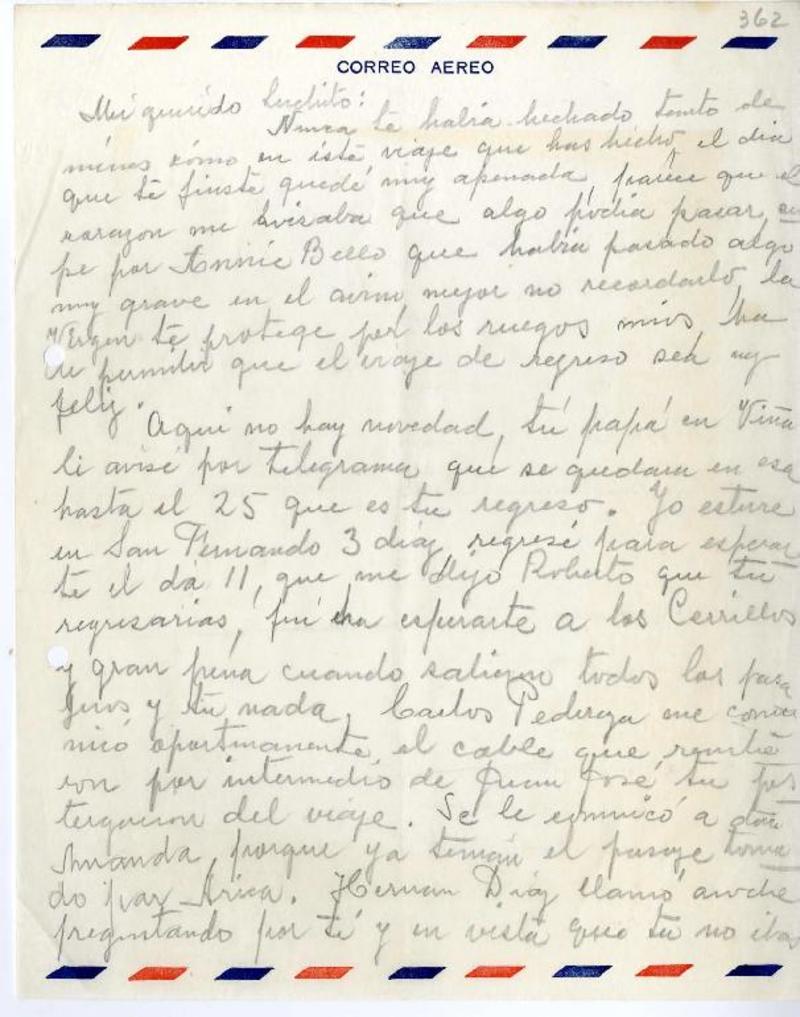 362
CORREO AEREO
Mi querido Luchito:
Nunca te había hechado tanto de
menos cómo en éste viaje que has hecho, el dia
que te fuiste quedé muy apenada, parece que el
corazon me avisaba que algo podia pasar, su
pe por Annie Bello que habia pasado algo
muy grave en el avion, mejor no recordarlo, la
Virgen te protege por los ruegos mios, ha
de permitir que el viaje de regreso sea muy
feliz.
Aqui no hay novedad, tú papá en Viña
le avisé por telegrama que se quedara en esa
hasta el 25 que es tu regreso. Yo estuve
en San Fernando 3 dias, regresé para esperar
te el dia 11, que me dijo Roberto que tu
regresarias, fui ha esperarte a los Cerrillos
y gran pena cuando salieron todos los pasa
jeros y tú nada, Carlos Pedraza me comu
nicó oportunamente el cable que remitie
ron por intermedio de Juan José tu pos
tergacion del viaje. Se le comunicó a
Amanda, porque ya tenian el pasaje toma
do par Arica. Hernan Diaz llamó anoche
preguntando por tí y en vista que tu no ibas